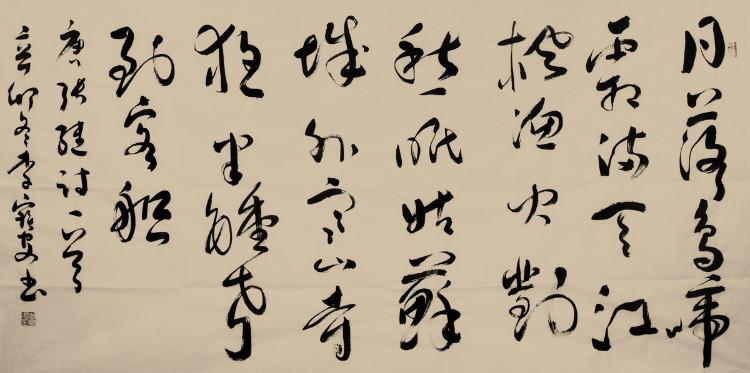 月落烏啼
霜满天江
枫渔火對
愁眠姑蘇
城外寒山寺
夜半鐘声
到客船
唐張継诗一首
辛卯冬李书